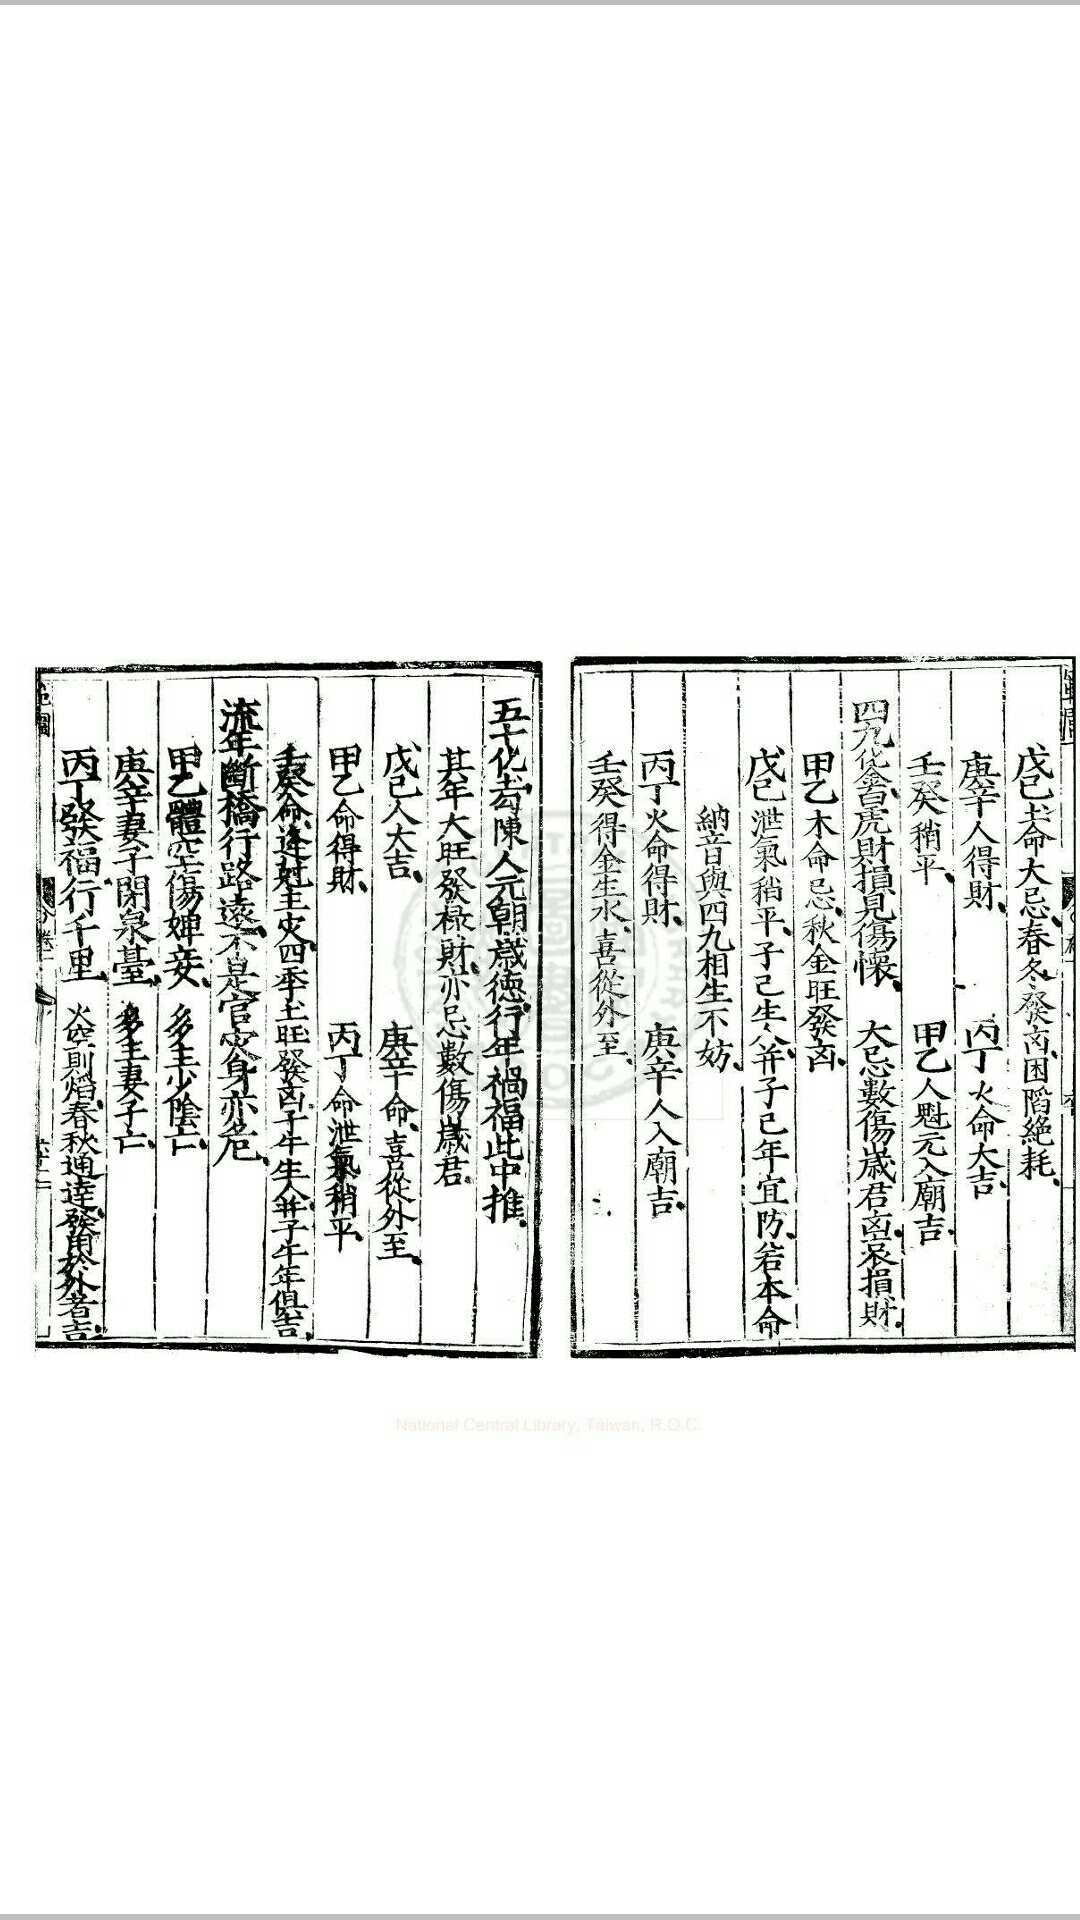 戊己土命大忌春冬發凶困陷絕耗
庚辛人得財　丙丁火命大吉
壬癸稍平　甲乙人魁元入廟吉
四九化金白虎財損見傷懷　大忌數傷歲君凶哀損財
甲乙木命忌秋金旺發凶
戊己泄氣稍平子己生人并子己年宜防若本命
納音與四九相生不妨
丙丁火命得財　庚辛人入廟吉
壬癸得金生水喜從外至
五十化勾陳人元朝歲德行年禍福此中推
其年大旺發祿財亦忌數傷歲君
戊己人大吉　庚辛命喜從外至
甲乙命得財　丙丁命泄氣稍平
壬癸命逢尅主灾四季土旺發凶子午生人并子午年俱吉
流年斷橋行路遠不是官灾身亦危
甲乙體空傷婢妾　多主少陰亡
庚辛妻子閉泉臺　多主妻子亡
丙丁發福行千里　火空則焰春秋通達發用於外者吉
National Central Library, Taiwan, R.O.C.